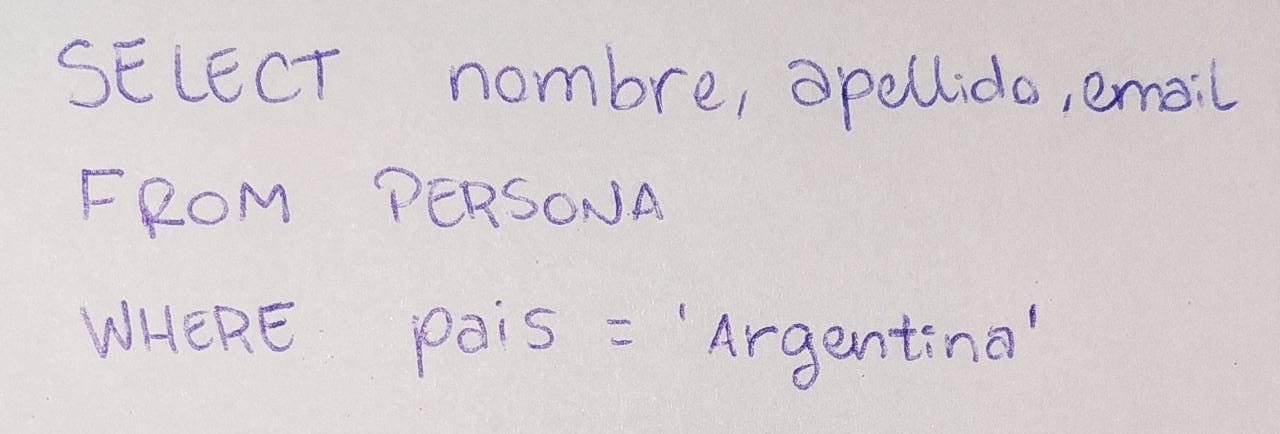 SELECT nombre, apellido, email
FROM PERSONA
WHERE pais = 'Argentina'